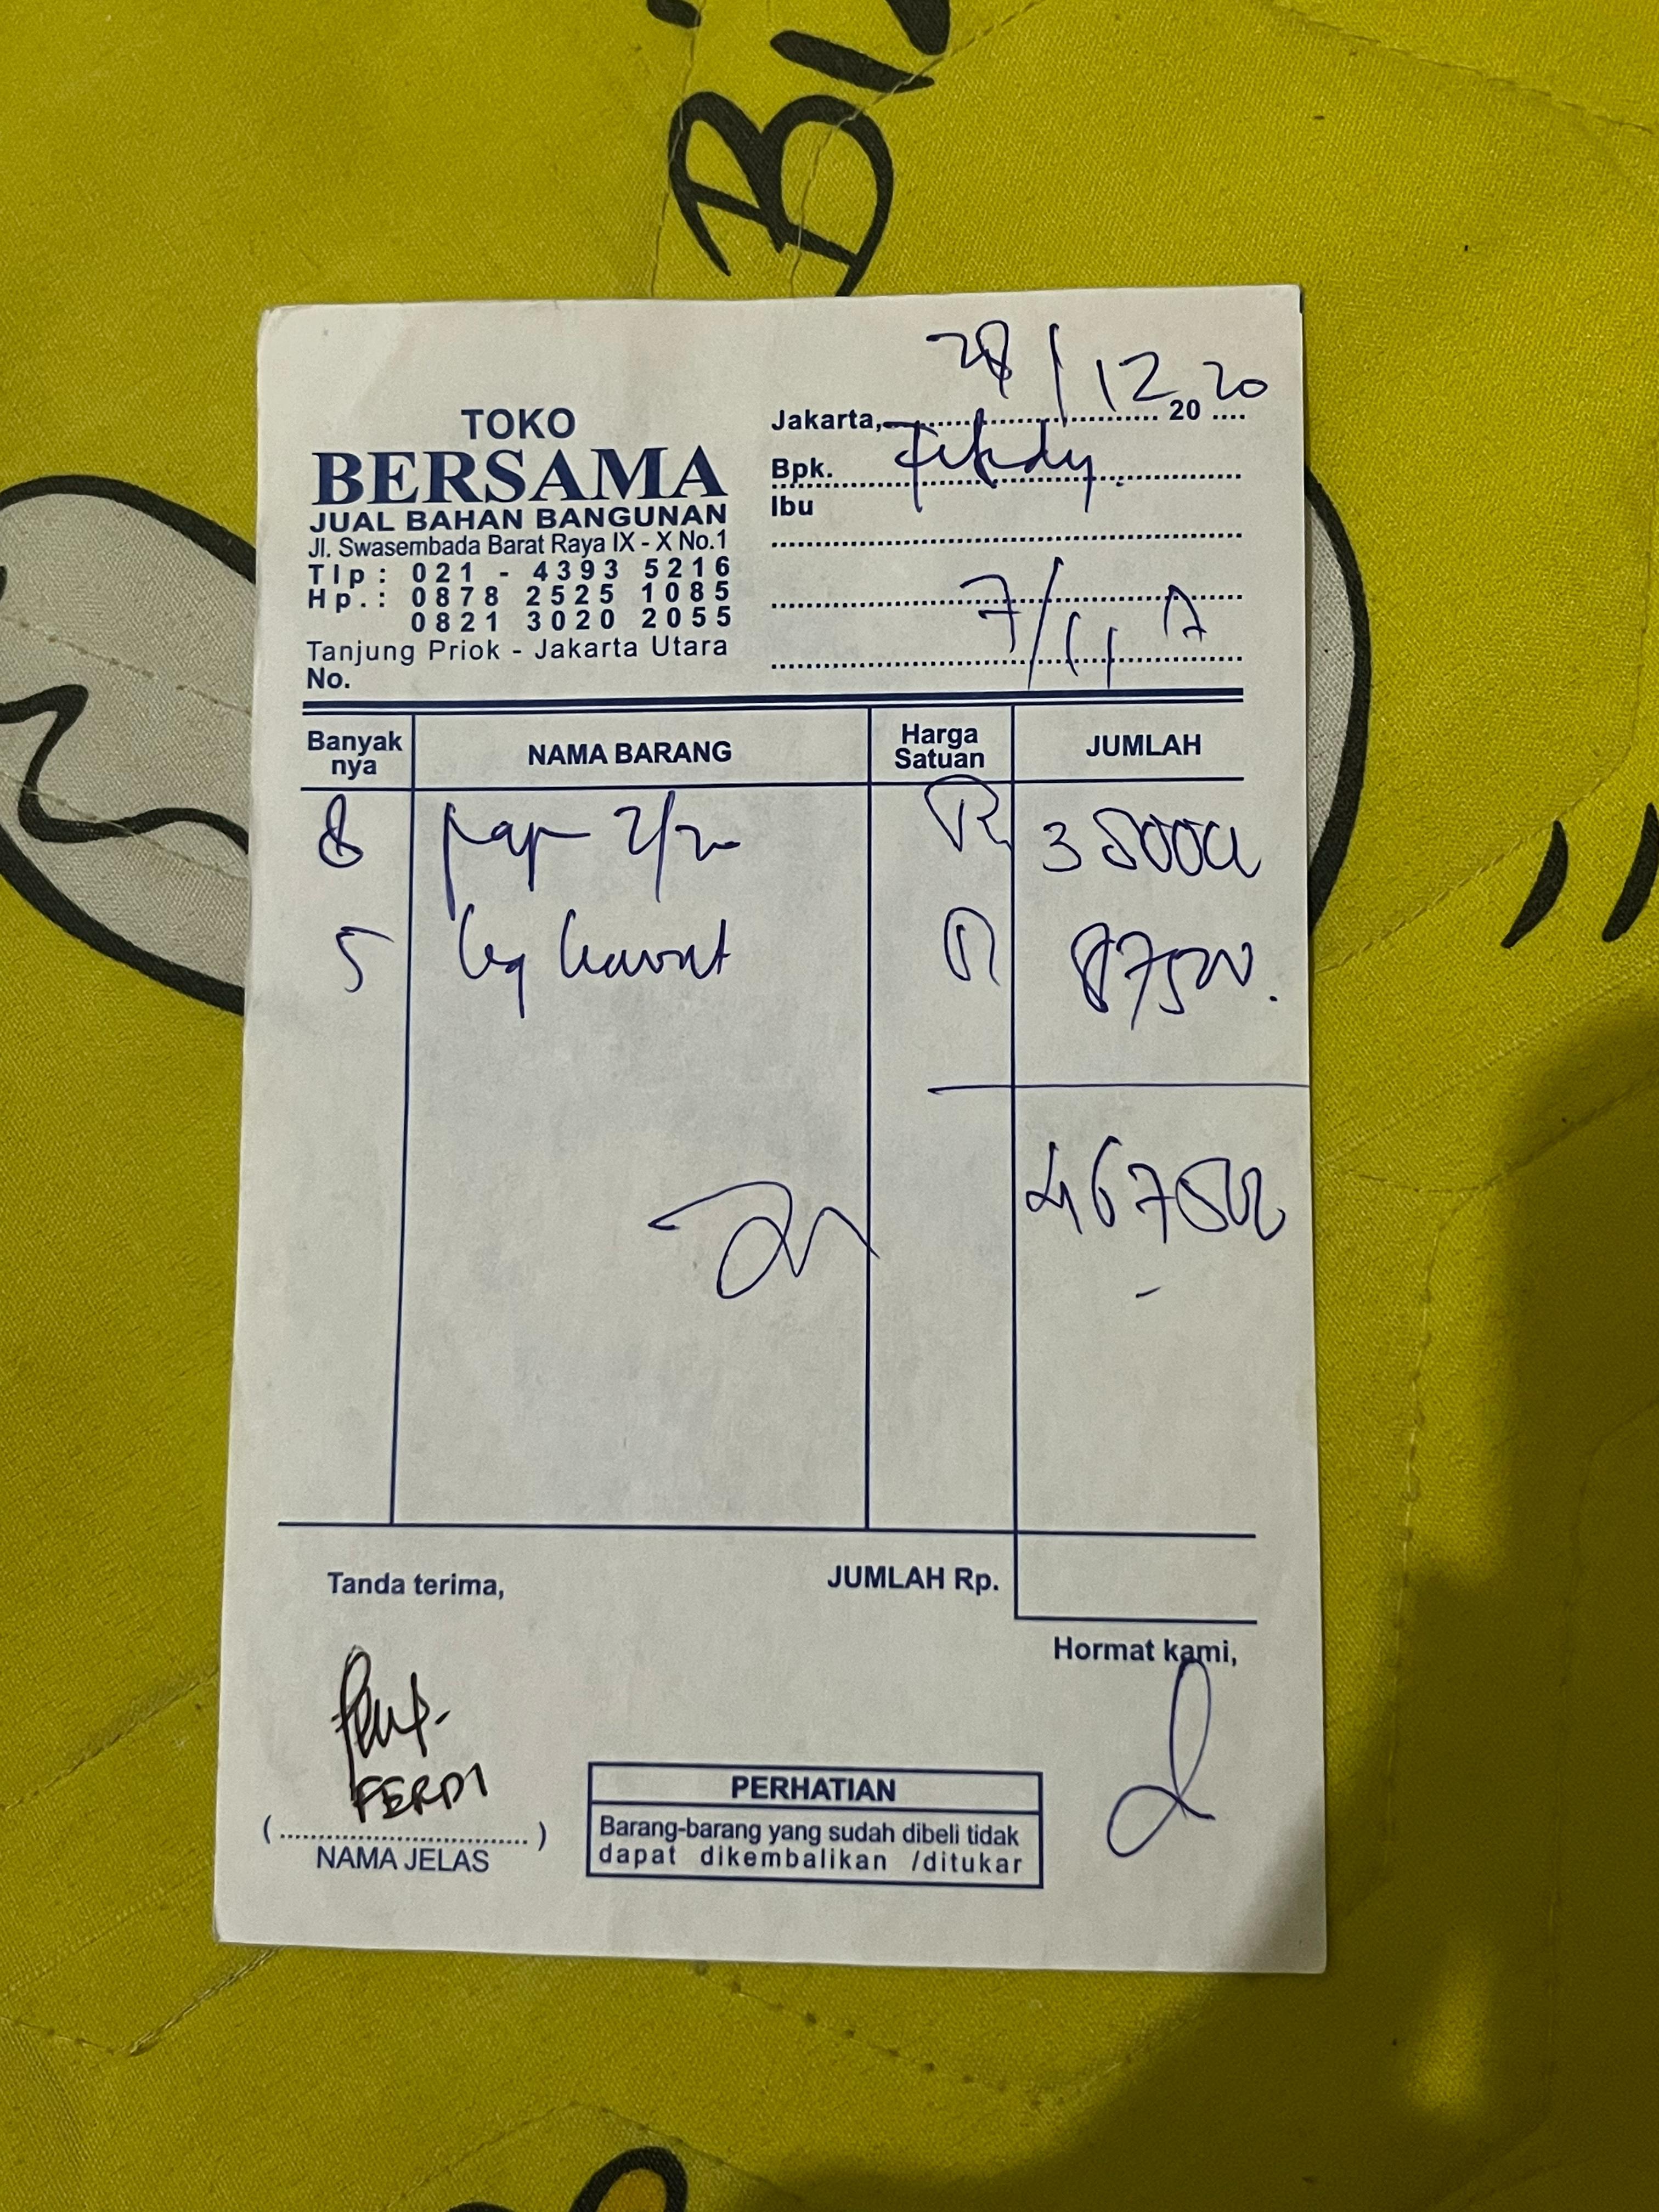 BI
28/12 2020
TOKO
BERSAMA
JUAL BAHAN BANGUNAN
Jl. Swasembada Barat Raya IX - X No.1
Tlp : 021 - 4393 5216
Hp. : 0878 2525 1085
0821 3020 2055
Tanjung Priok - Jakarta Utara
No.
Jakarta,
Bpk.
Ibu
7/11 A
Banyak nya NAMA BARANG Harga Satuan JUMLAH
8 papan 2/20
5 kg kawat 87500.
467500
Tanda terima,
JUMLAH Rp.
Hormat kami,
FERDI
( .............................. )
NAMA JELAS
PERHATIAN
Barang-barang yang sudah dibeli tidak
dapat dikembalikan /ditukar